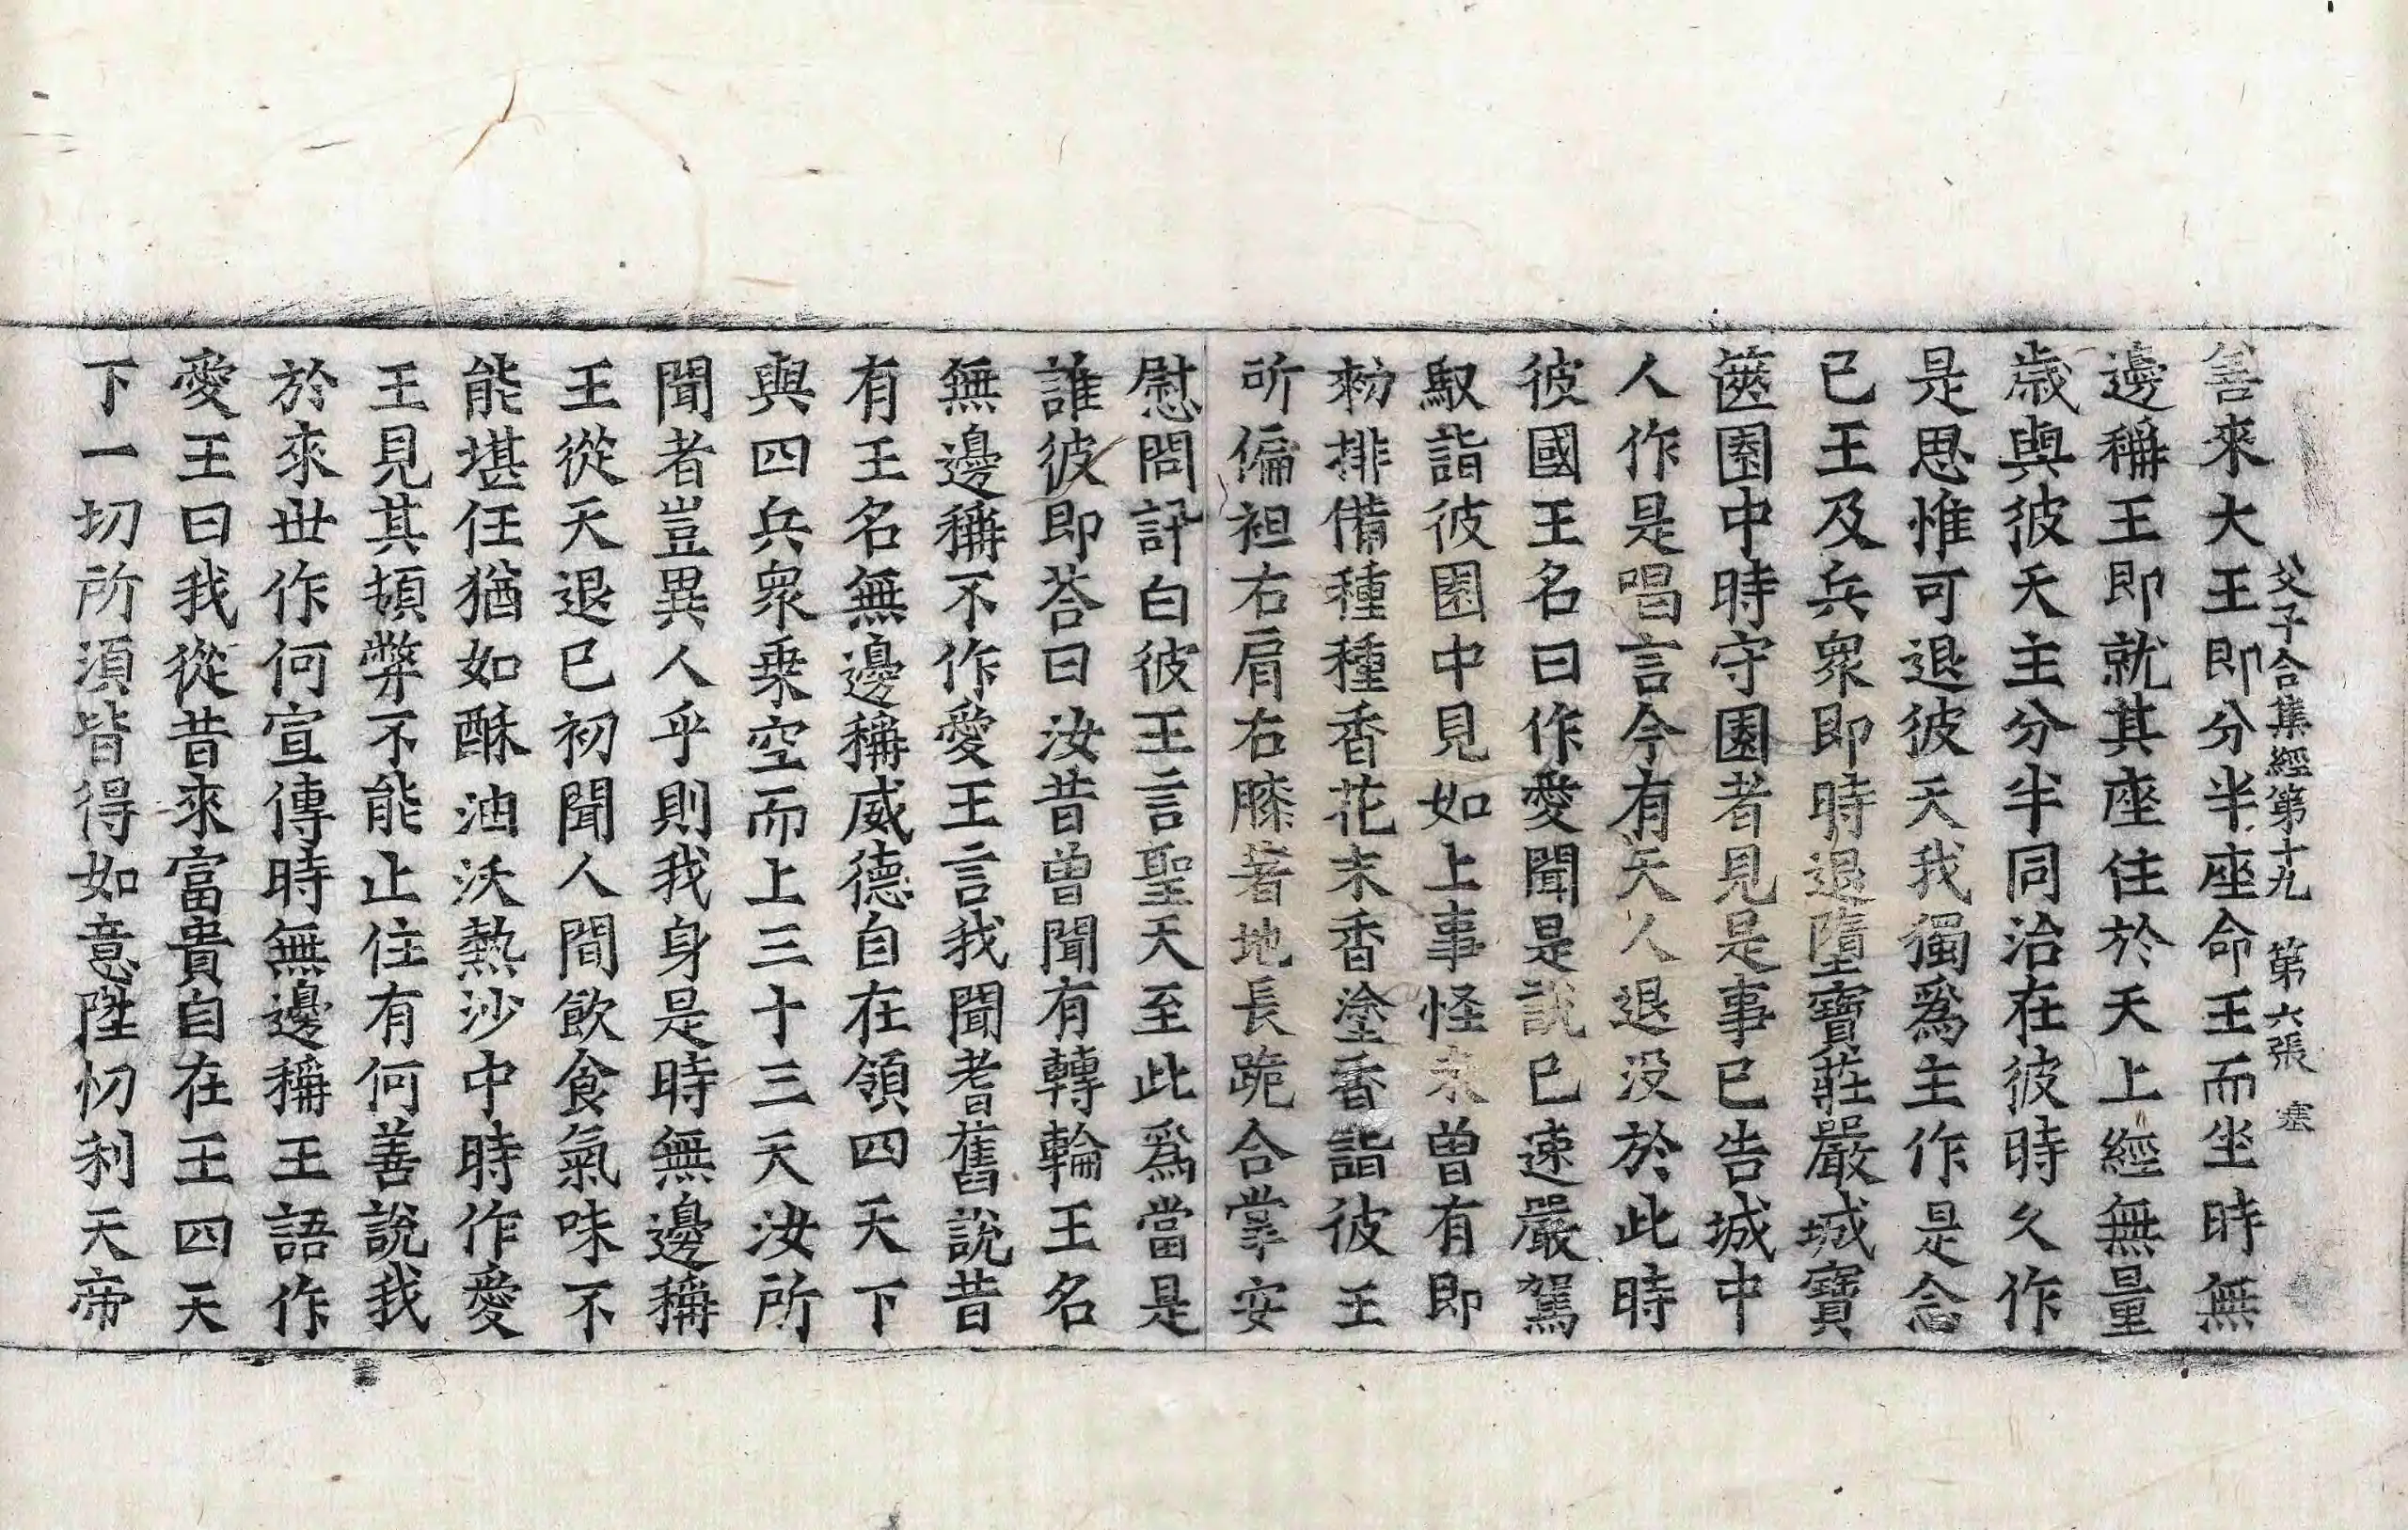 父子合集經第十九 第六張 塞
善來大王即分半座命王而坐時無
邊稱王即就其座住於天上經無量
歳與彼天主分半同治在彼時久作
是思惟可退彼天我獨爲主作是念
已王及兵衆即時退墮寶莊嚴城寶
篋園中時守園者見是事已告城中
人作是唱言今有天人退没於此時
彼國王名曰作愛聞是說已速嚴駕
馭詣彼園中見如上事怪未曾有即
勑排備種種香花末香塗香詣彼王
所偏袒右肩右膝著地長跪合掌安
慰問訊白彼王言聖天至此爲當是
誰彼即荅曰汝昔曾聞有轉輪王名
無邊稱不作愛王言我聞耆舊說昔
有王名無邊稱威德自在領四天下
與四兵衆乗空而上三十三天汝所
聞者豈異人乎則我身是時無邊稱
王從天退已初聞人間飲食氣味不
能堪任猶如酥油沃熱沙中時作愛
王見其頓弊不能止住有何善說我
於來世作何宣傳時無邊稱王語作
愛王曰我從昔來富貴自在王四天
下一切所須皆得如意陞忉利天帝